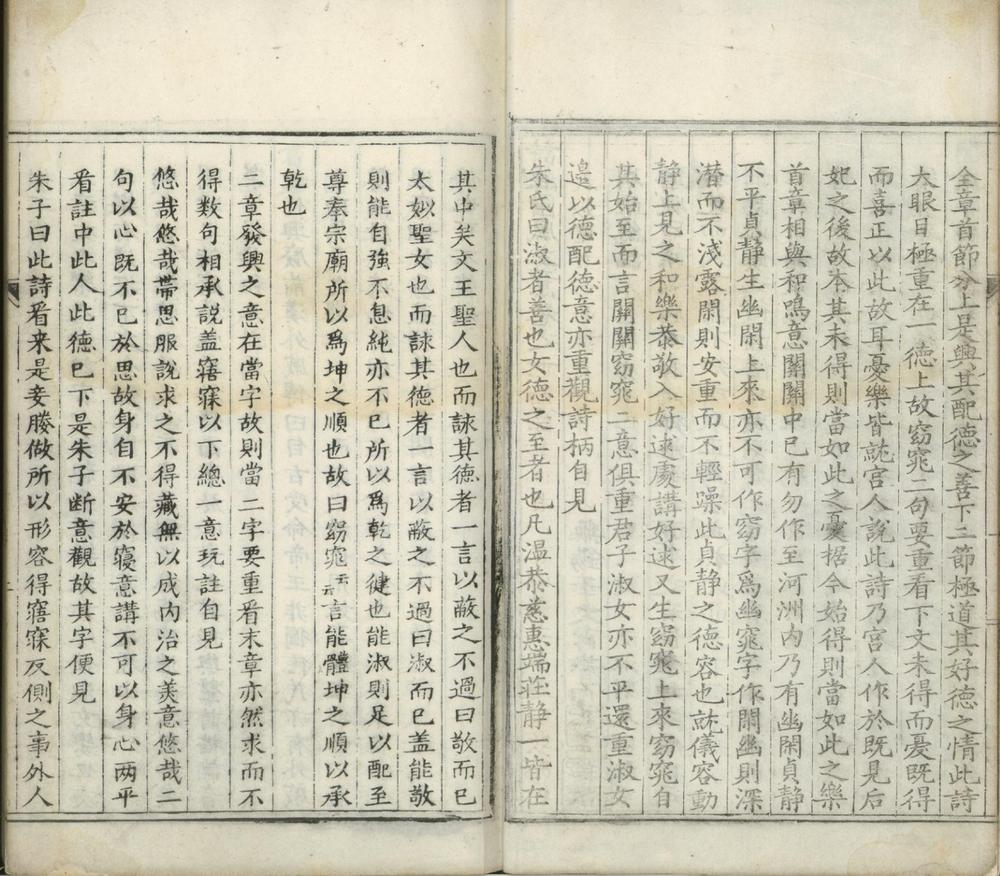 全章首節分上是興其配德之善下二節極道其好德之情此詩
大眼目極重在一德上故窈窕二句要重看下文未得而憂既得
而喜正以此故耳憂樂皆就宮人說此詩乃宮人作於既見后
妃之後故本其未得則當如此之憂据今始得則當如此之樂
首章相與和鳴意關關中已有勿作至河洲內乃有幽閑貞靜
不平貞靜生幽閑上來亦不可作窈字爲幽窕字作閑幽則深
潜而不淺露閑則安重而不輕躁此貞静之德容也就儀容動
静上見之和樂恭敬入好逑處講好逑又生窈窕上來窈窕自
其始至而言關關窈窕二意俱重君子淑女亦不平還重淑女
邉以德配德意亦重觀詩柄自見
朱氏曰淑者善也女德之至者也凡温恭慈惠端莊静一皆在
其中矣文王聖人也而詠其德者一言以蔽之不過曰敬而已
太妙聖女也而詠其德者一言以蔽之不過曰淑而已盖能敬
則能自強不息純亦不已所以爲乾之健也能淑則足以配至
尊奉宗廟所以爲坤之順也故曰窈窕云云言能體坤之順以承
乾也
二章發興之意在當字故則當二字要重看末章亦然求而不
得数句相承說盖寤寐以下總一意玩註自見
悠哉悠哉帶思服說求之不得藏無以成内治之美意悠哉二
句以心既不已於思故身自不安於寢意講不可以身心两平
看註中此人此德已下是朱子断意觀故其字便見
朱子曰此詩看来是妾媵做所以形容得寤寐反側之事外人